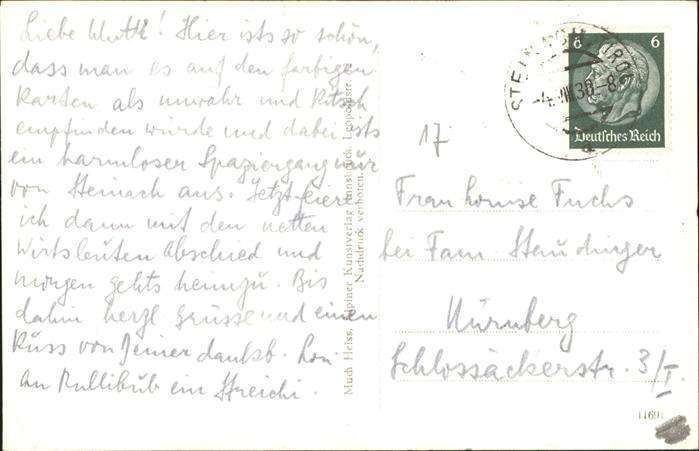 Liebe Mutti! Hier ists so schön,
dass man es auf den farbigen
Karten als unwahr und Kitsch
empfinden würde und dabei ists
ein harmloser Spaziergang nur
von Steinach aus. Jetzt feire
ich dann mit den netten
Wirtsleuten Abschied und
morgen gehts heimzu. Bis
dahin herzl Grüsse und einen
Kuss von Deiner dankb.
an Pullibub ein Streichi.
Much Heiss, Alpiner Kunstverlag Innsbruck, Leopoldstr.
Nachdruck verboten.
STEINACH TIROL
-4.VIII.38-8
6 6
Deutsches Reich
a
17
Frau Louise Fuchs
bei Fam Staudinger
Nürnberg
Schlossäckerstr. 3/I.
1469